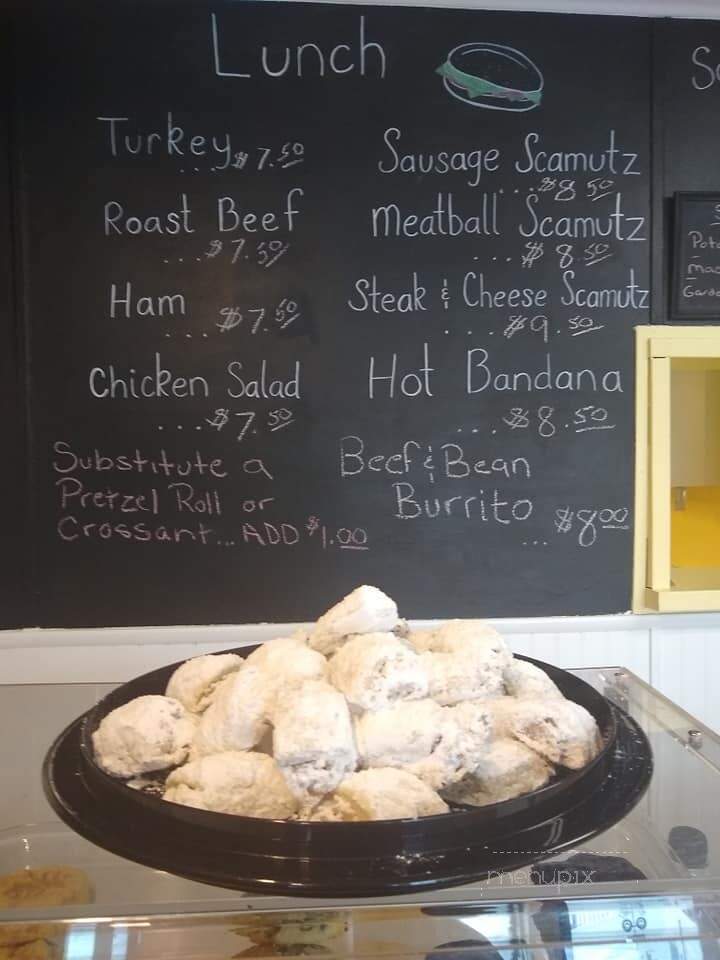 Lunch
Turkey
... $7.50
Roast Beef
... $7.50
Ham
... $7.50
Chicken Salad
... $7.50
Substitute a
Pretzel Roll or
Crossant... ADD $1.00
Sausage Scamutz
... $8.50
Meatball Scamutz
... $8.50
Steak & Cheese Scamutz
.... $9.50
Hot Bandana
... $8.50
Beef & Bean
Burrito
... $8.00
menupix